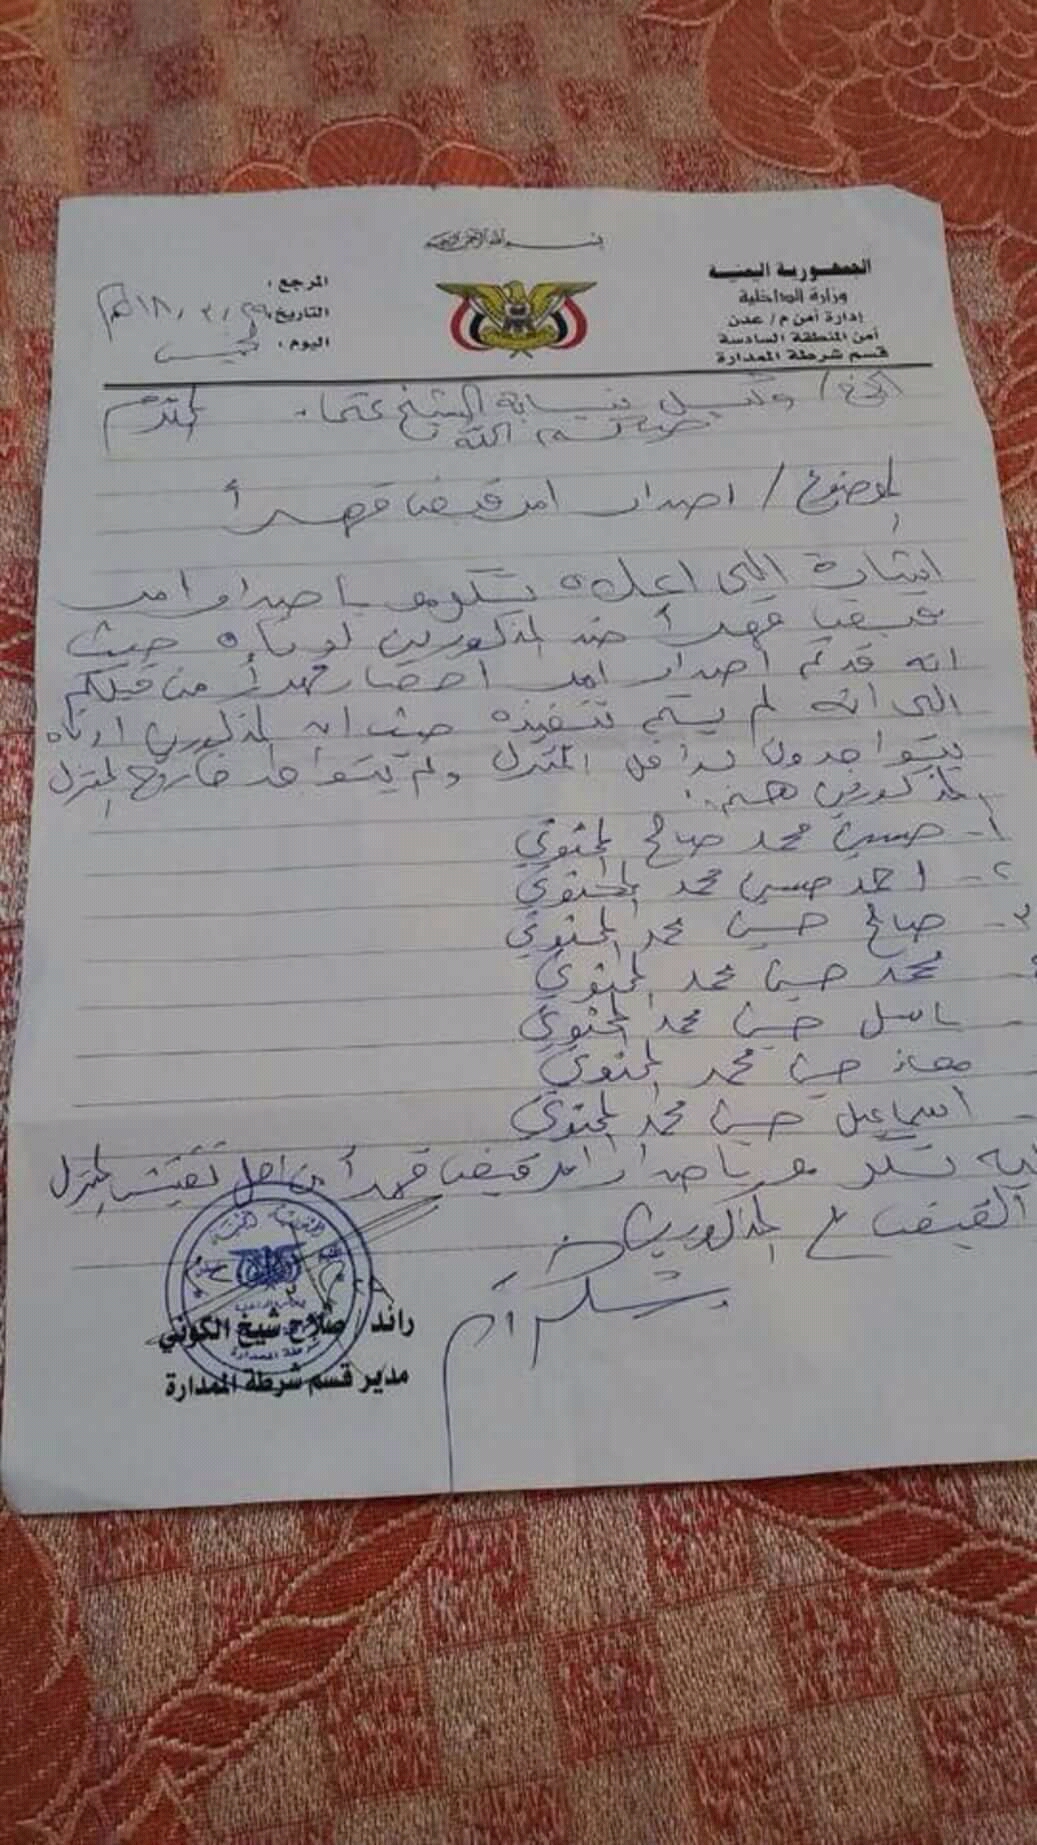 بسم الله الرحمن الرحيم
الجمهورية اليمنية
وزارة الداخلية
إدارة أمن م/ عدن
أمن المنطقة السادسة
قسم شرطة الممدارة
المرجع :
التاريخ : ٢٩ / ٣ / ١٨
اليوم : الخميس
الأخ / وكيل نيابة الشيخ عثمان المحترم
الموضوع / اصدار امر قبض قهراً
اشارة الى اعلاه تكرموا باصدار امر
قبض قهراً ضد المذكورين ادناه حيث
انه قد تم اصدار امر احضار قهراً من قبلكم
الى انه لم يتم تنفيذه حيث ان المذكورين ادناه
يتواجدون داخل المنزل ولم يتواجد خارج المنزل
المذكورين هم :
١- حسين محمد صالح
٢- احمد حسين محمد
٣- صالح حسين محمد
محمد حسين محمد
باسل حسين محمد
معاذ حسين محمد
- اسماعيل حسين محمد
باصدار امر قبض قهراً من اجل تفتيش المنزل
القبض على المذكورين
وشكراً
رائد / صلاح شيخ الكوني
مدير قسم شرطة الممدارة